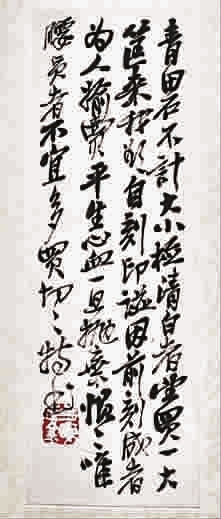 青田石不計大小極清白者堂買一大
筐來秤欲自刻印溢因前刻成者
為人揄賣平生心血一旦拋棄恨之唯
腰員者不宜多買切之特